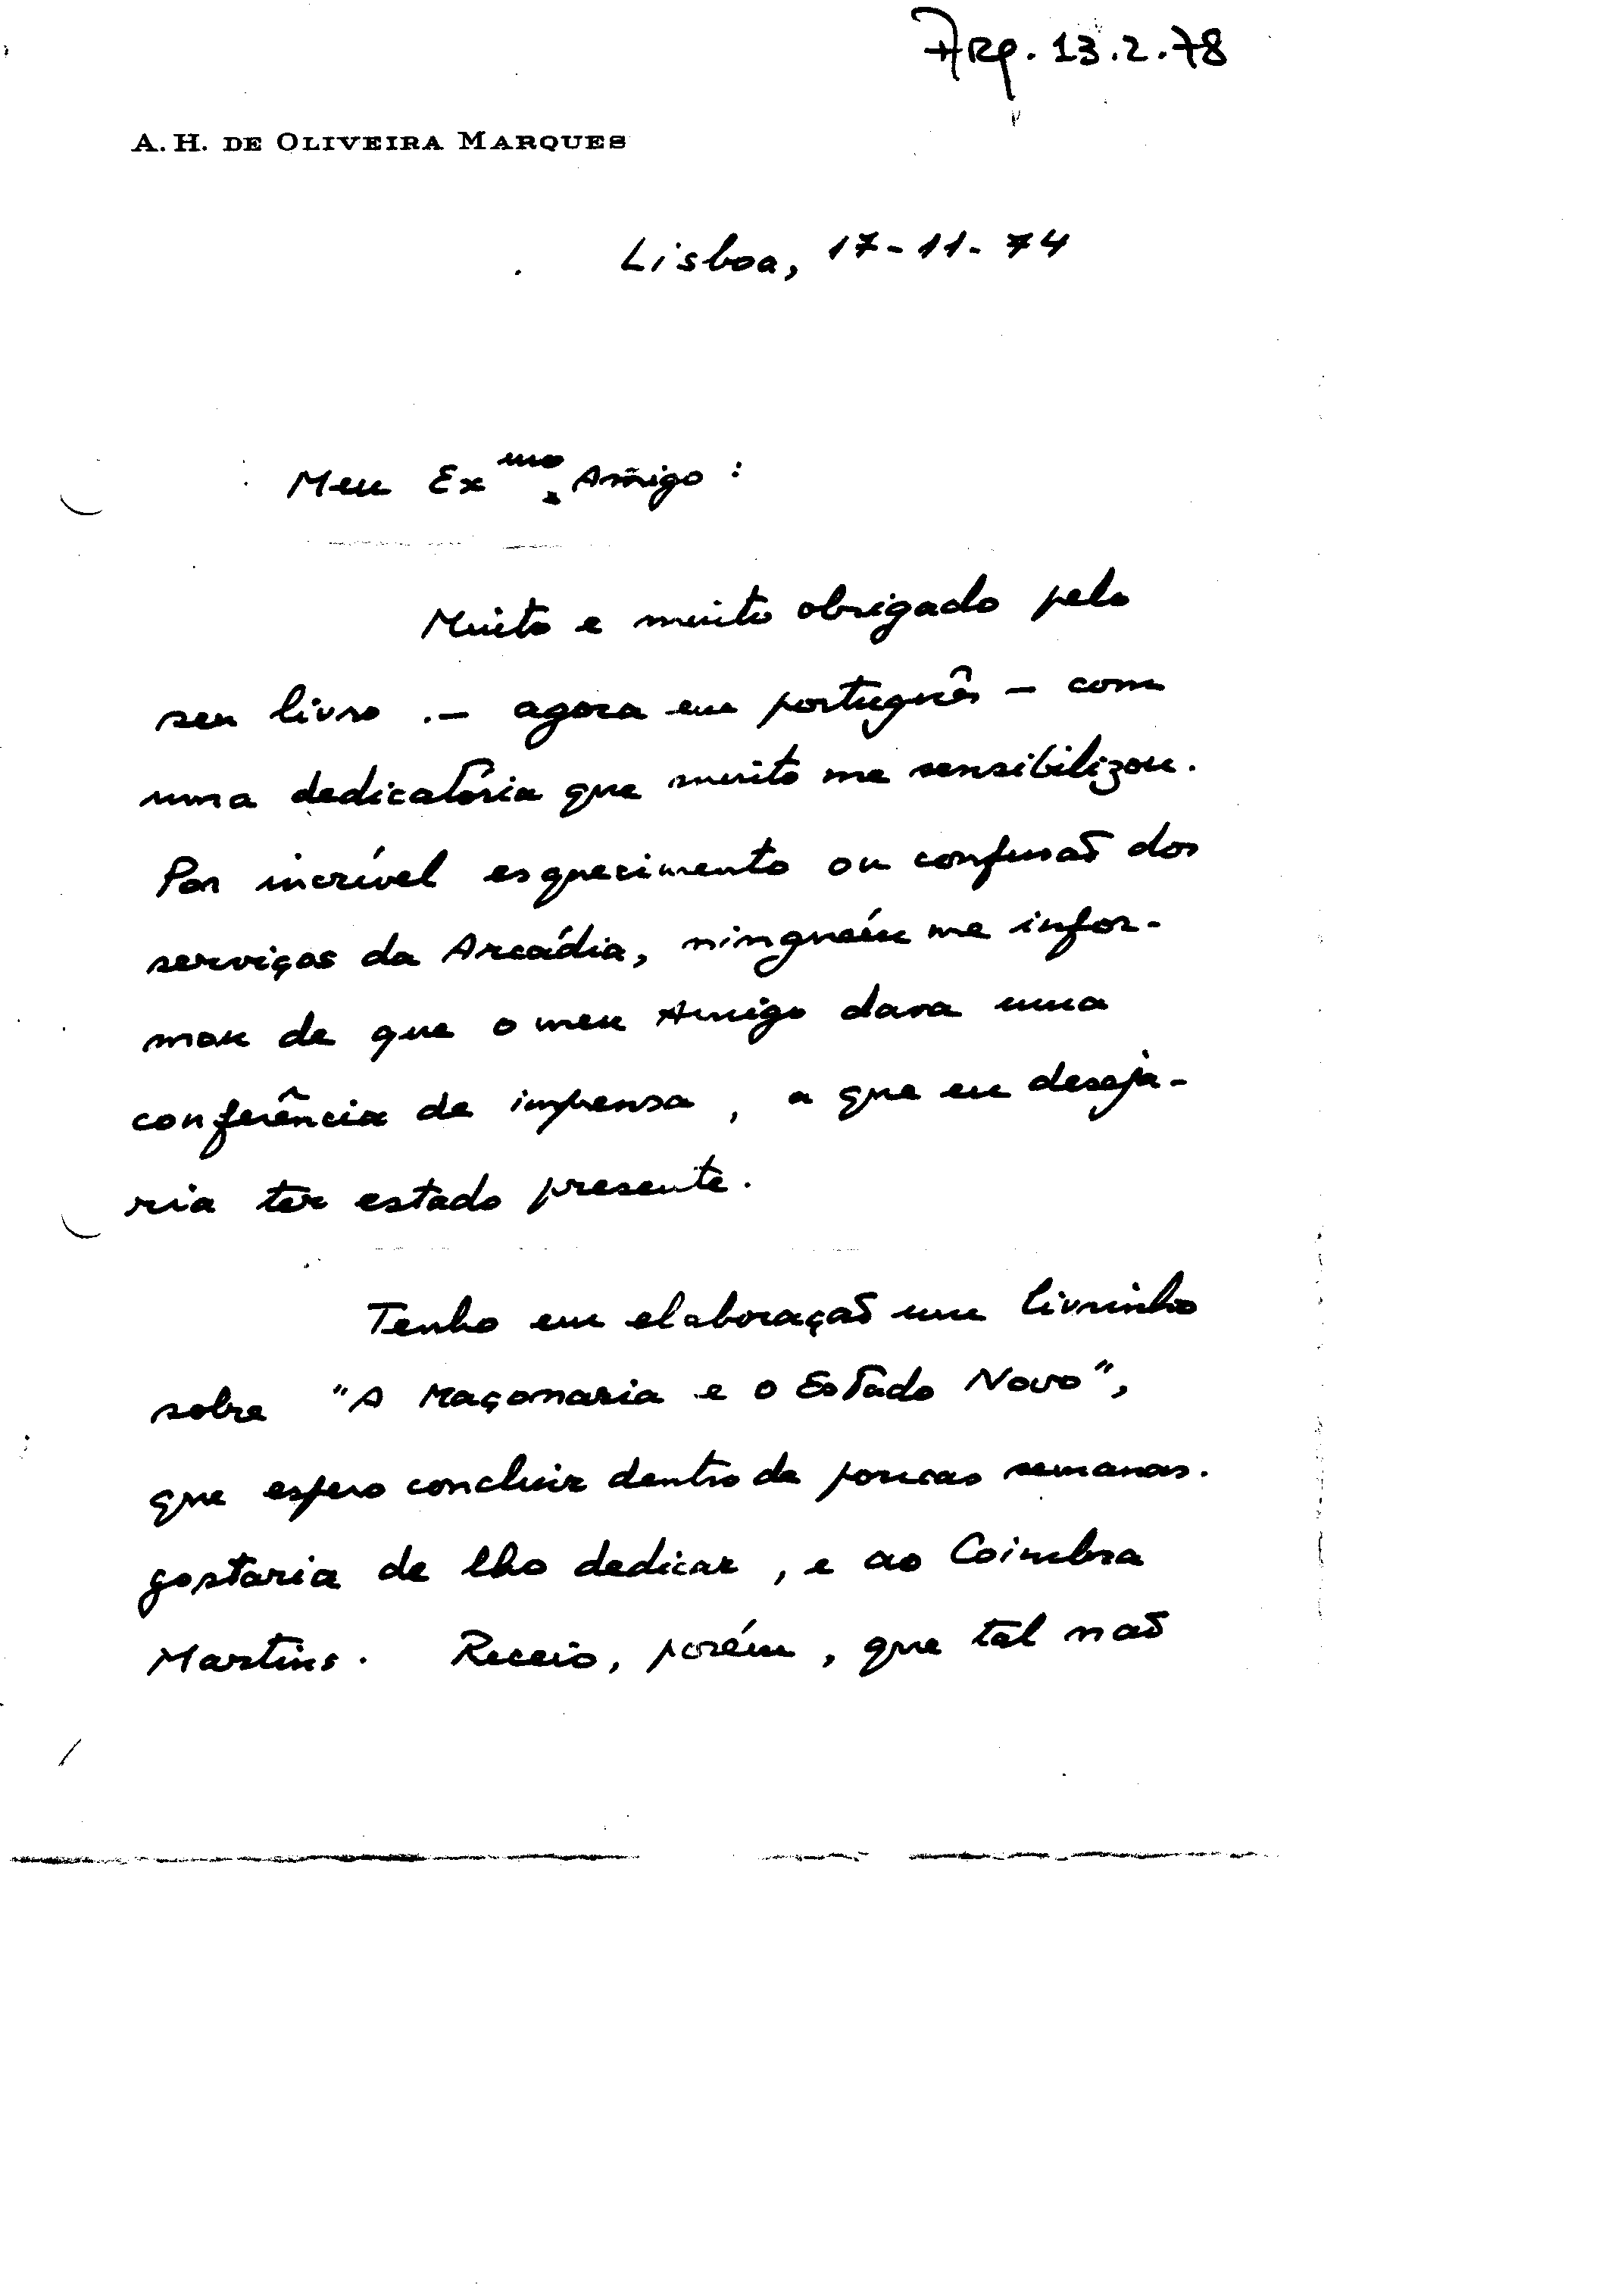 Arq. 13.2.78
A. H. DE OLIVEIRA MARQUES
Lisboa, 17-11-74
Meu Exmo. Amigo:
Muito e muito obrigado pelo
seu livro - agora em português - com
uma dedicatória que muito me sensibilizou.
Por incrível esquecimento ou confusão dos
serviços da Arcádia, ninguém me infor-
mou de que o meu Amigo dava uma
conferência de imprensa, a que eu deseja-
ria ter estado presente.
Tenho em elaboração um livrinho
sobre "A Maçonaria e o Estado Novo",
que espero concluir dentro de poucas semanas.
gostaria de lho dedicar, e ao Coimbra
Martins. Receio, porém, que tal não